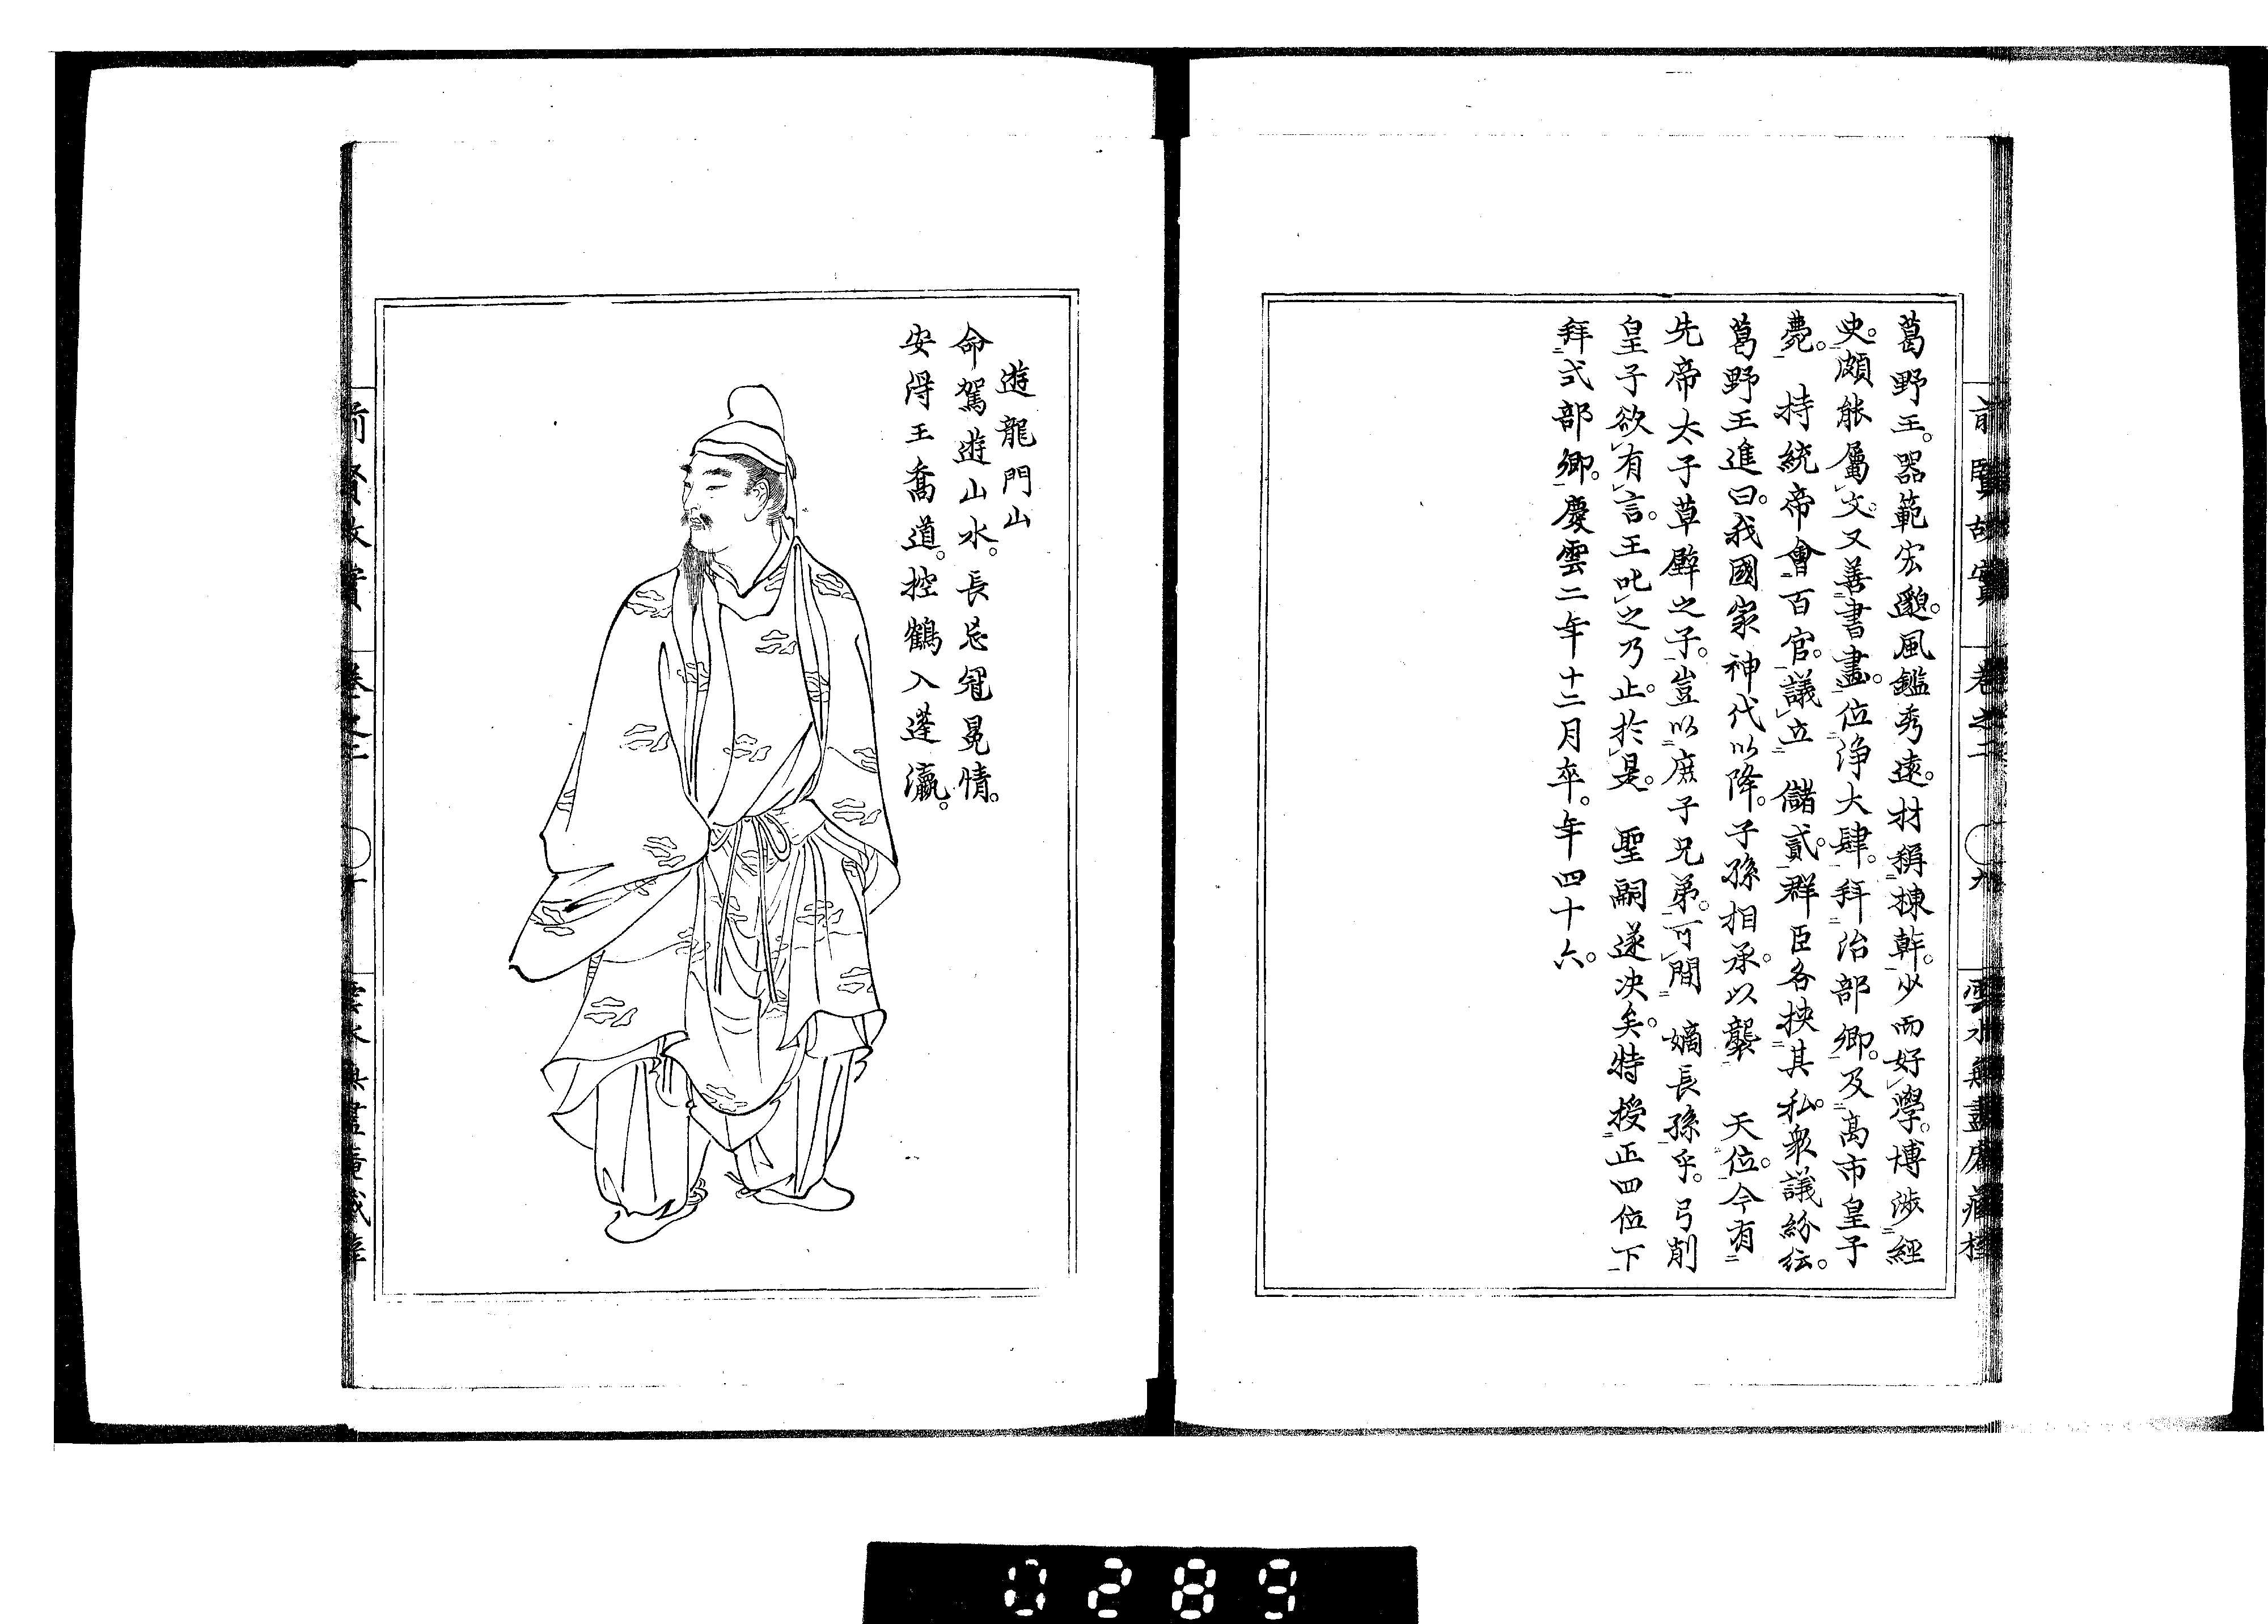 前賢故實 巻之二 九 雲水無盡庵藏梓
葛野王。器範宏邈。風鑑秀遠。材稱棟幹。少而好學。博渉經
史。頗能屬文。又善書畫。位淨大肆。拜治部卿。及高市皇子
薨。 持統帝會百官。議立 儲貳。群臣各挾其私。衆議紛紜。
葛野王進曰。我國家神代以降。子孫相承。以襲 天位。今有
先帝太子草壁之子。豈以庶子兄弟。可間 嫡長孫乎。弓削
皇子欲有言。王叱之乃止。於是 聖嗣遂决矣。特授正四位下
拜式部卿。慶雲二年十二月卒。年四十六。
遊龍門山
命駕遊山水。長忘冠冕情。
安得王喬道。控鶴入蓬瀛。
前賢故實 巻之二 十
0289